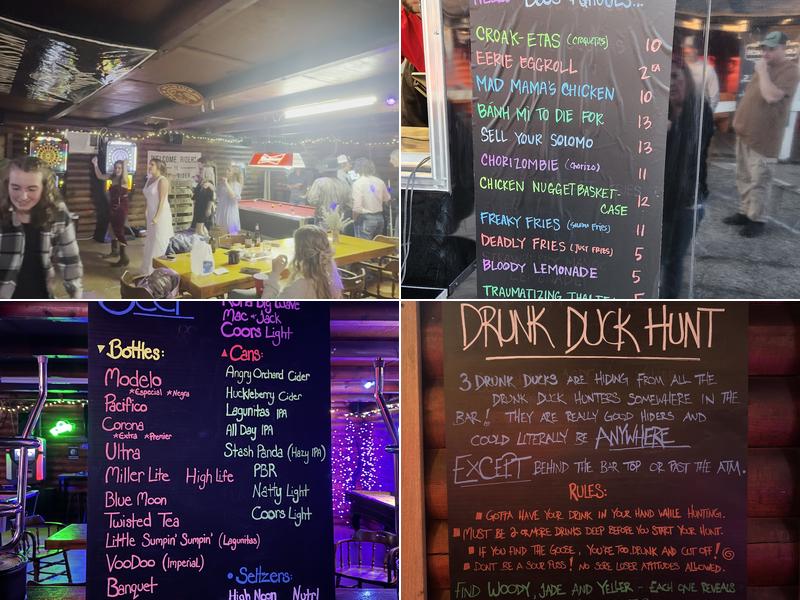 WELCOME RIDERS
RIDER
Budweiser
CROAK-ETAS (CROQUETAS) 10
EERIE EGGROLL 2 EA
MAD MAMA'S CHICKEN 10
BÁNH MÌ TO DIE FOR 13
SELL YOUR SOLOMO 13
CHORIZOMBIE (CHORIZO) 11
CHICKEN NUGGET BASKET-
CASE 12
FREAKY FRIES 11
DEADLY FRIES (JUST FRIES) 5
BLOODY LEMONADE 5
TRAUMATIZING
BEER
Kona Big Wave
Mac & Jack
Coors Light
Bottles:
Modelo
*Especial *Negra
Pacifico
Corona
*Extra *Premier
Ultra
Miller Lite High Life
Blue Moon
Twisted Tea
Little Sumpin' Sumpin' (Lagunitas)
VooDoo (Imperial)
Banquet
Cans:
Angry Orchard Cider
Huckleberry Cider
Lagunitas IPA
All Day IPA
Stash Panda (Hazy IPA)
PBR
Natty Light
Coors Light
Seltzers:
High Noon Nutrl
DRUNK DUCK HUNT
3 DRUNK DUCKS ARE HIDING FROM ALL THE
DRUNK DUCK HUNTERS SOMEWHERE IN THE
BAR! THEY ARE REALLY GOOD HIDERS AND
COULD LITERALLY BE ANYWHERE
EXCEPT BEHIND THE BAR TOP OR PAST THE ATM.
RULES:
GOTTA HAVE YOUR DRINK IN YOUR HAND WHILE HUNTING.
MUST BE 2 OR MORE DRINKS DEEP BEFORE YOU START YOUR HUNT.
IF YOU FIND THE GOOSE, YOU'RE TOO DRUNK AND CUT OFF!
DON'T BE A SOUR PUSS! NO SORE LOSER ATTITUDES ALLOWED.
FIND WOODY, JADE AND YELLER - EACH ONE REVEALS